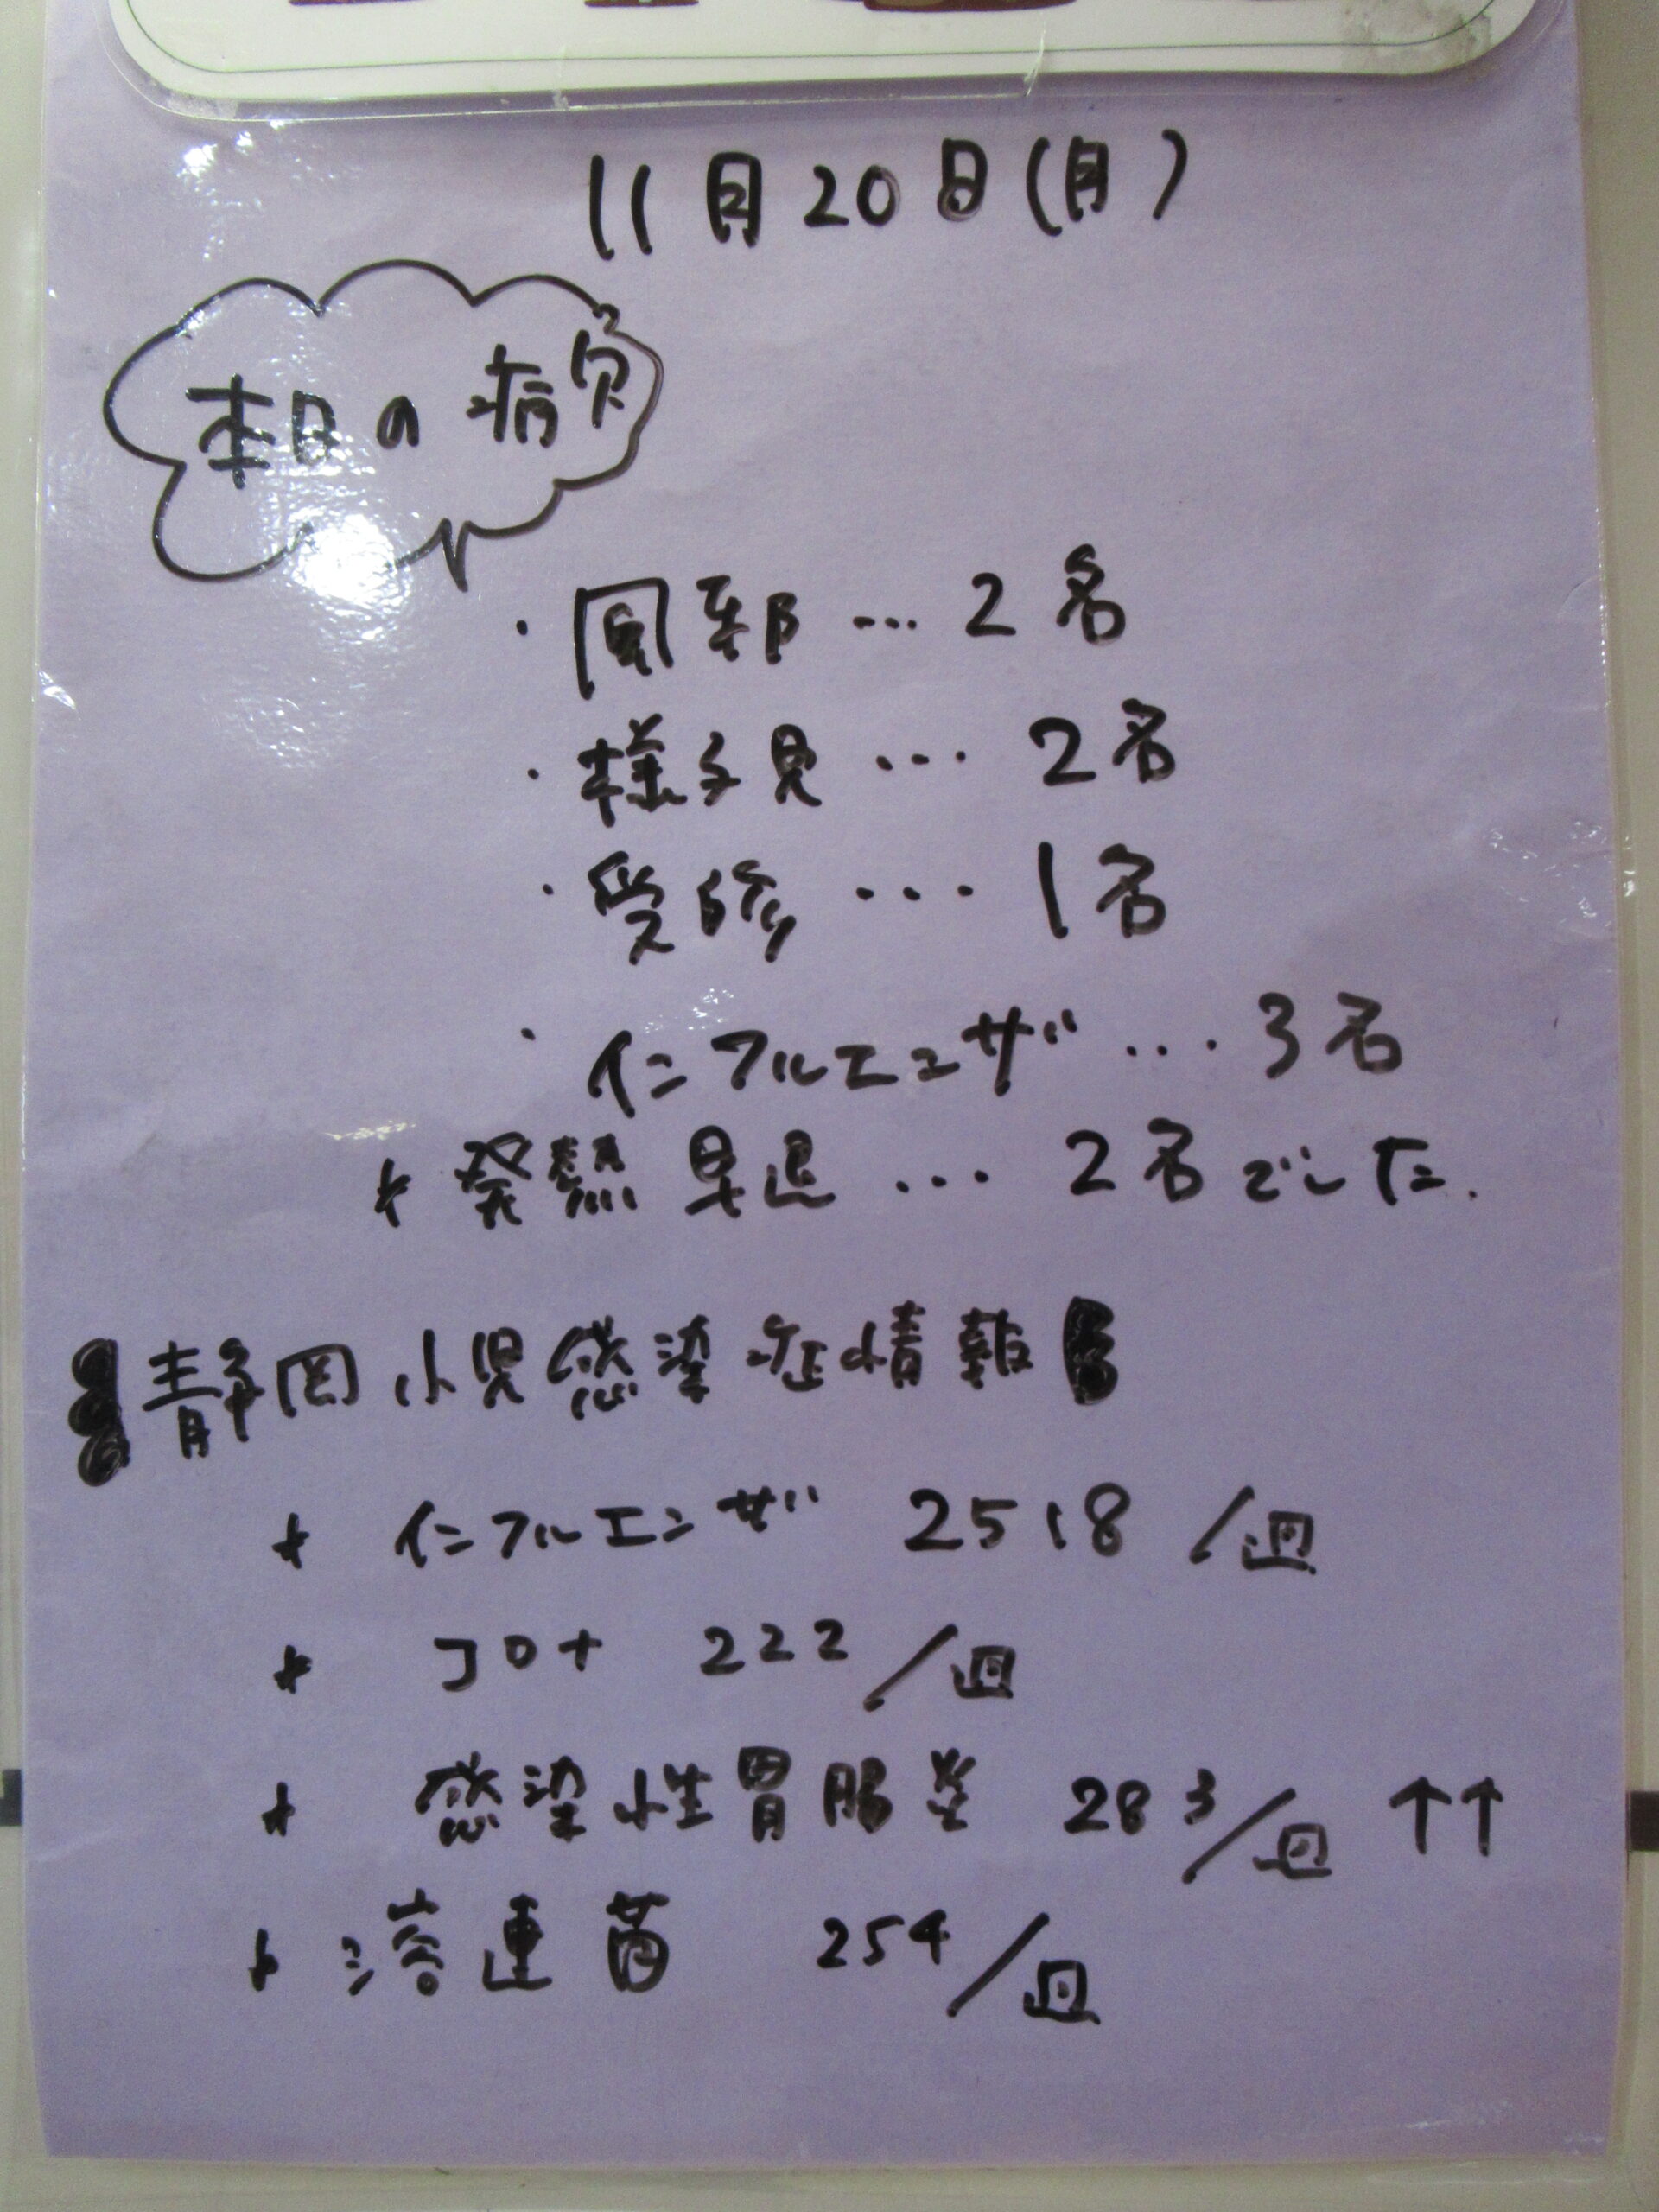 11月20日(月)
本日の病欠
・風邪…2名
・様子見…2名
・受診…1名
・インフルエンザ…3名
* 発熱早退…2名でした.
【静岡小児感染症情報】
* インフルエンザ 2518/週
* コロナ 222/週
* 感染性胃腸炎 283/週 ↑↑
* 溶連菌 254/週